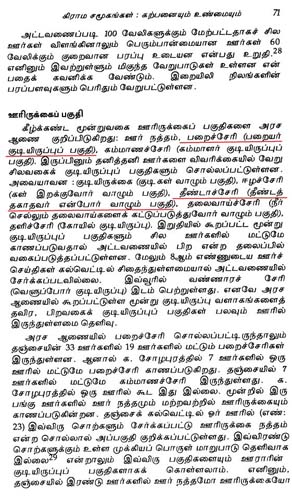 கிராம சமூகங்கள் : கற்பனையும் உண்மையும் 71
அட்டவணைப்படி 100 வேலிகளுக்கும் மேற்பட்டதாகச் சில
ஊர்கள் விளங்கினாலும் பெரும்பான்மையான ஊர்கள் 60
வேலிக்கும் குறைவான பரப்பு உடையன என்பது உறுதி.28
எனினும் இவற்றினுள்ளும் மிகுந்த வேறுபாடுகள் உள்ளன என்
பதைக் கவனிக்க வேண்டும். இறையிலி நிலங்களின்
பரப்பளவுகளும் பெரிதும் வேறுபட்டுள்ளன.
ஊரிருக்கைப் பகுதி
கீழ்க்கண்ட மூன்றுவகை ஊரிருக்கைப் பகுதிகளை அரச
ஆணை குறிப்பிடுகிறது: ஊர் நத்தம், பறைச்சேரி (பறையர்
குடியிருப்புப் பகுதி), கம்மாணச்சேரி (கம்மாளர் குடியிருப்புப்
பகுதி). இருப்பினும் தனித்தனி ஊர்களை விவரிக்கையில் வேறு
சிலவகைக் குடியிருப்புப் பகுதிகளும் சொல்லப்பட்டுள்ளன.
அவையாவன : குடியிருக்கை (குடிகள் வாழும் பகுதி), ஈழச்சேரி
(கள் இறக்குவோர் வாழும் பகுதி), தீண்டாச்சேரி (தீண்டத்
தகாதவர் என்போர் வாழும் பகுதி), தலைவாய்ச்சேரி (நீர்
செல்லும் தலைவாய்களைக் கட்டுப்படுத்துவோர் வாழும் பகுதி),
தளிச்சேரி (கோயில் குடியிருப்பு). இறுதியில் கூறப்பட்ட மூன்று
குடியிருப்புப் பகுதிகளும் சில ஊர்களில் மட்டுமே
காணப்படுவதால் அட்டவணையில் பிற என்ற தலைப்பில்
வகைப்படுத்தப்பட்டுள்ளன. மேலும் 8ஆம் எண்ணுடைய ஊர்ச்
செய்திகள் கல்வெட்டில் சிதைந்துள்ளமையால் அட்டவணையில்
சேர்க்கப்படவில்லை. இவ்வூரில் வண்ணாரச் சேரி
(வெளுப்போர் குடியிருப்பு) இடம் பெற்றுள்ளது. எனவே அரச
ஆணையில் கூறப்பட்டுள்ள மூன்று குடியிருப்பு வளாகங்களைத்
தவிர, பிறவகைக் குடியிருப்புப் பகுதிகள் பலவும் ஊரில்
இருந்துள்ளமை தெளிவு.
அரச ஆணையில் பறைச்சேரி சொல்லப்பட்டிருந்தாலும்
தஞ்சையின் 33 ஊர்களில் 19 ஊர்களில் மட்டும் பறைச்சேரிகள்
இருந்துள்ளன. ஆனால் க. சோழபுரத்தில் 7 ஊர்களில் ஒரு
ஊரில் மட்டுமே பறைச்சேரி காணப்படுகிறது. தஞ்சையில் 7
ஊர்களில் மட்டுமே கம்மாணச்சேரி இருந்துள்ளது. க.
சோழபுரத்தில் ஒரு ஊரில் கூட இது இல்லை. மூன்றில் இரு
பங்கு ஊர்களில் ஊர் நத்தமும் மற்றவற்றில் ஊரிருக்கையும்
காணப்படுகின்றன. தஞ்சைக் கல்வெட்டில் ஓர் ஊரில் (எண்:
23) இவ்விரு சொற்களும் சேர்க்கப்பட்டு ஊரிருக்கை நத்தம்
என்ற சொல்லால் அப்பகுதி குறிக்கப்பட்டுள்ளது. இவ்விரண்டு
சொற்களுக்கும் உள்ள முக்கியப் பொருள் மாறுபாடு தெளிவாக
இல்லை29 என்றாலும் இவ்விரு பகுதிகளையும் ஊராரின்
குடியிருப்புப் பகுதிகளாகக் கொள்ளலாம். எனினும்,
தஞ்சையில் இரண்டு ஊர்களில் ஊர் நத்தமோ ஊரிருக்கையோ